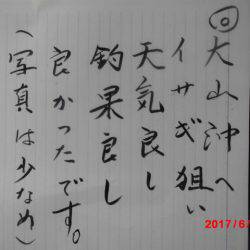 ◎大山沖へ
イサギ狙い
天気良し
釣果良し
良かったです。
(写真は少なめ)
2017/6